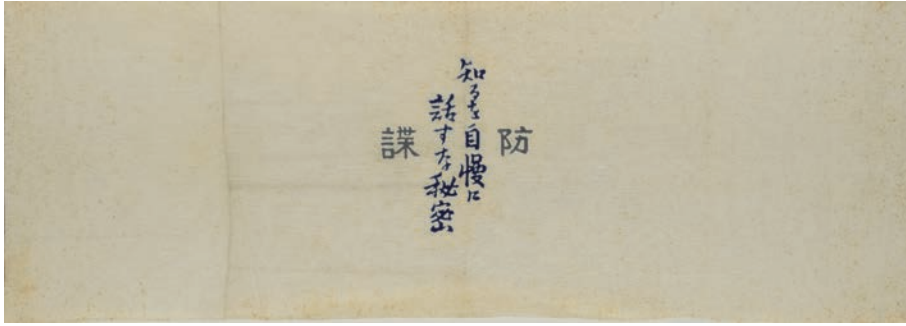 防諜
知るを自慢に
話すな秘密